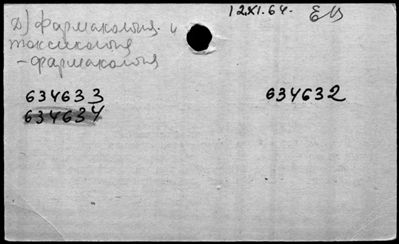 12.XI.64. ЕИ
Д) Фармакология и
токсикология
- фармакология
634633 634632
634634